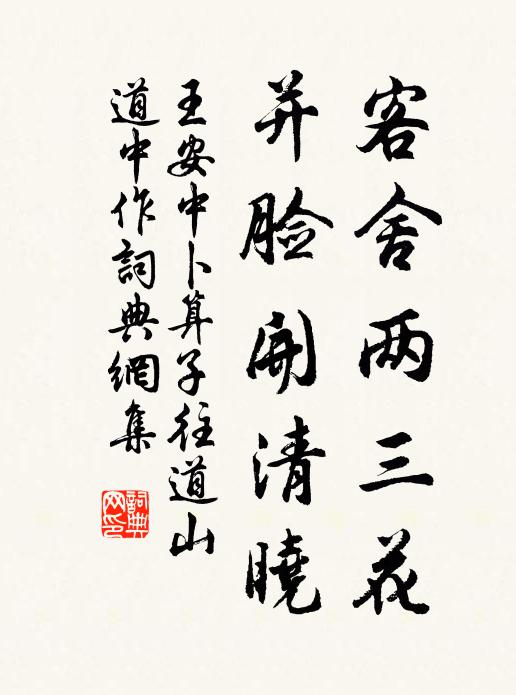 客舍两三花
并脸開清曉
王安中卜算子往道山
道中作詞典網集
詞典网印